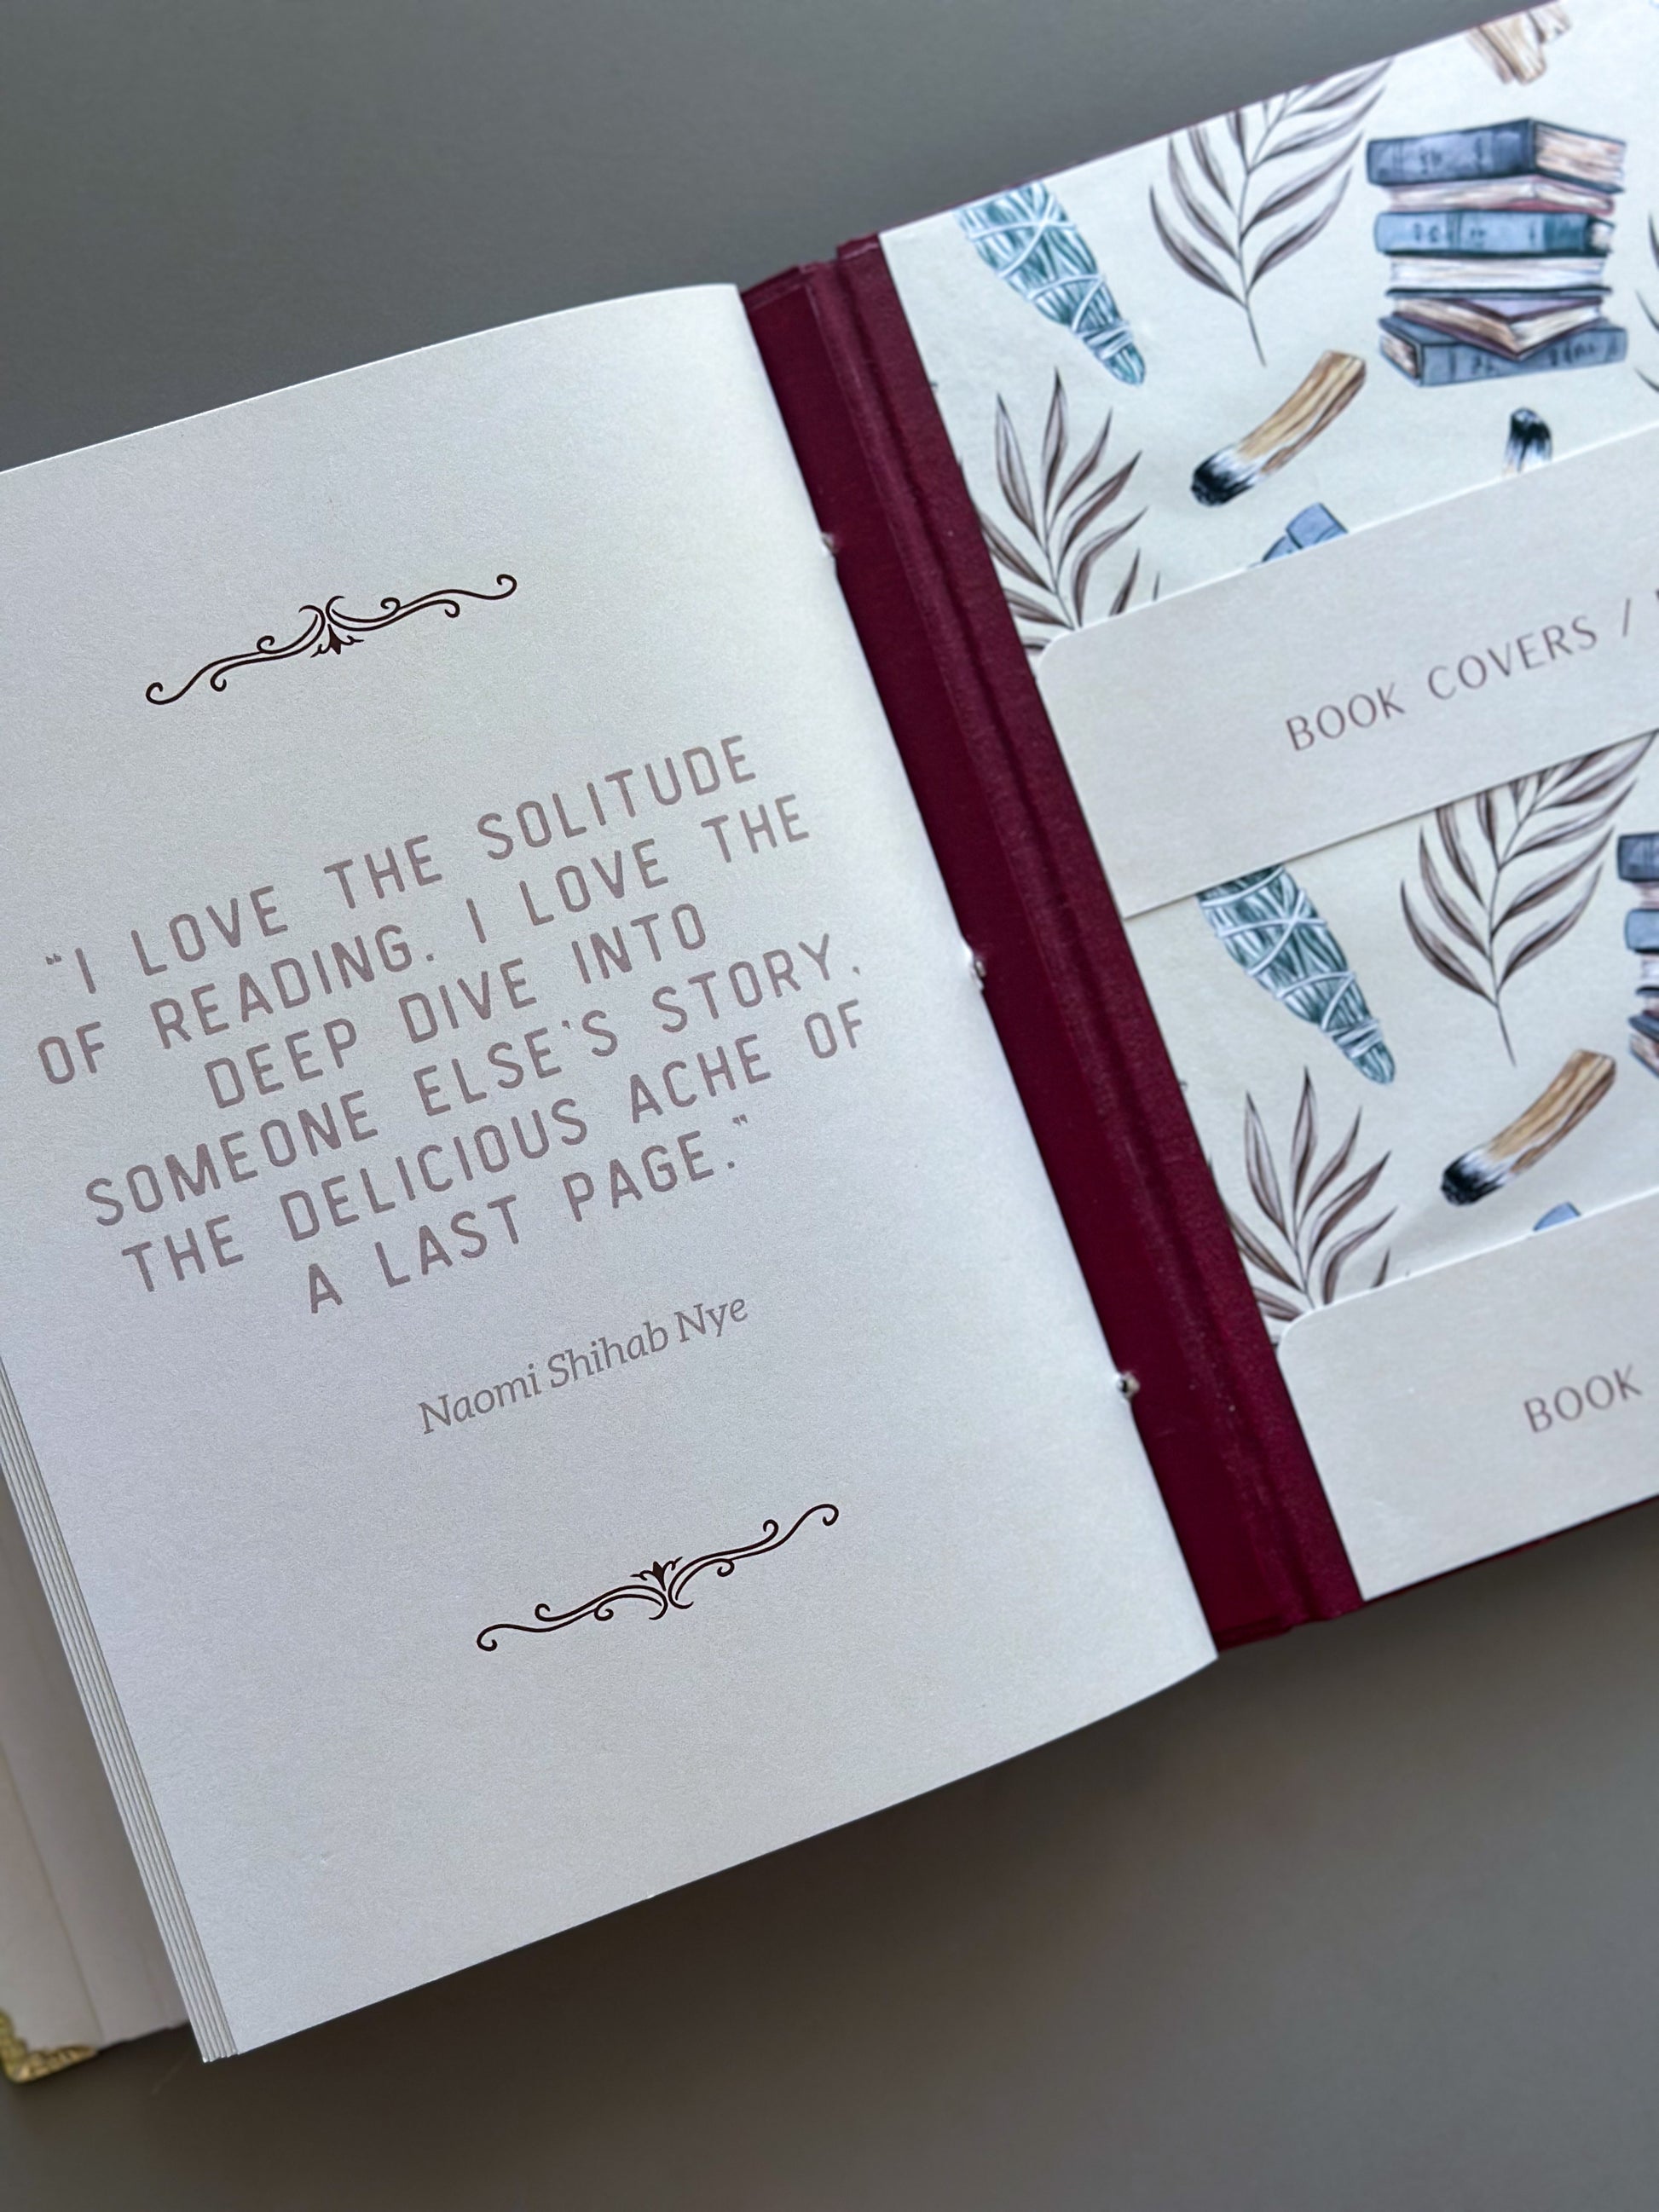 “I LOVE THE SOLITUDE
OF READING. I LOVE THE
DEEP DIVE INTO
SOMEONE ELSE'S STORY,
THE DELICIOUS ACHE OF
A LAST PAGE.”
Naomi Shihab Nye
BOOK COVERS /
BOOK